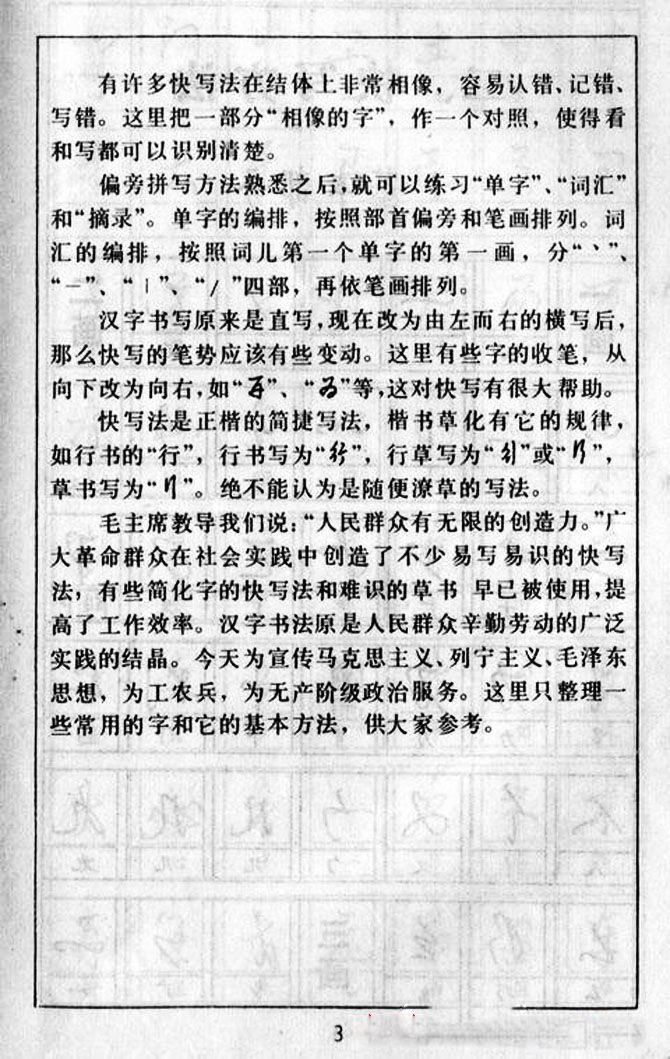 有许多快写法在结体上非常相像，容易认错、记错、
写错。这里把一部分“相像的字”，作一个对照，使得看
和写都可以识别清楚。
偏旁拼写方法熟悉之后，就可以练习“单字”、“词汇”
和“摘录”。单字的编排，按照部首偏旁和笔画排列。词
汇的编排，按照词儿第一个单字的第一画，分“丶”、
“一”、“丨”、“丿”四部，再依笔画排列。
汉字书写原来是直写，现在改为由左而右的横写后，
那么快写的笔势应该有些变动。这里有些字的收笔，从
向下改为向右，如“”、“”等，这对快写有很大帮助。
快写法是正楷的简捷写法，楷书草化有它的规律，
如行书的“行”，行书写为“行”，行草写为“”或“”，
草书写为“”。绝不能认为是随便潦草的写法。
毛主席教导我们说：“人民群众有无限的创造力。”广
大革命群众在社会实践中创造了不少易写易识的快写
法，有些简化字的快写法和难识的草书 早已被使用，提
高了工作效率。汉字书法原是人民群众辛勤劳动的广泛
实践的结晶。今天为宣传马克思主义、列宁主义、毛泽东
思想，为工农兵，为无产阶级政治服务。这里只整理一
些常用的字和它的基本方法，供大家参考。
3